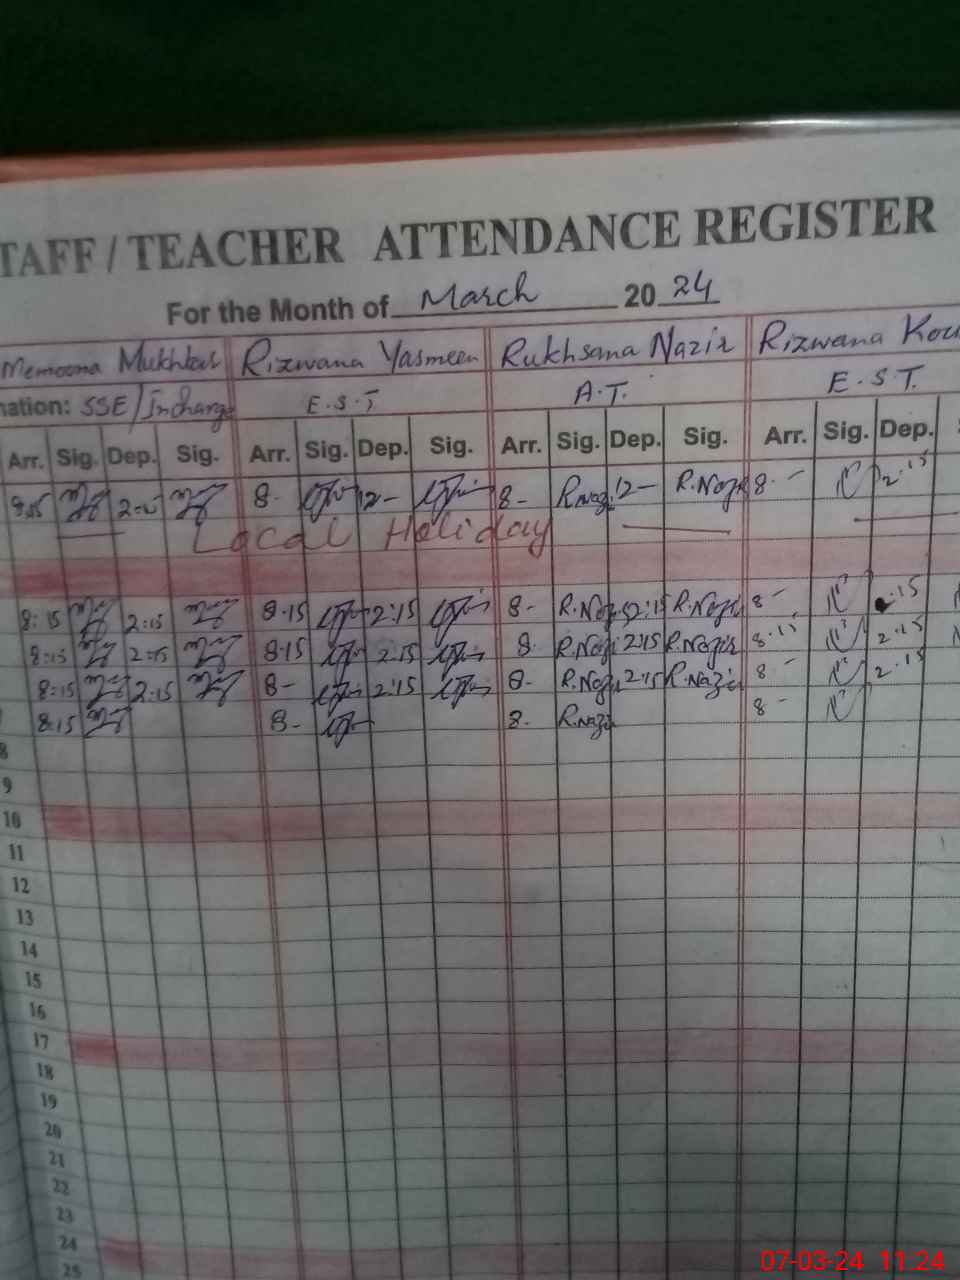 TAFF / TEACHER ATTENDANCE REGISTER
For the Month of March 2024
Memoona Mukhtar Rizwana Yasmeen Rukhsana Nazir Rizwana Kou
nation: SSE/Incharge E.S.T A.T. E.S.T.
Arr. Sig. Dep. Sig. Arr. Sig. Dep. Sig. Arr. Sig. Dep. Sig. Arr. Sig. Dep.
8- 12- 8- R.Nazi 12- R.Nazir 8- 2.15
Local Holiday
8:15 2:15 8.15 2:15 8- R.Nazi 2:15 R.Nazir 8- .15
8:15 2:15 8.15 2:15 8. R.Nazi 2:15 R.Nazir 8.15 2.15
8:15 2:15 8- 2:15 8- R.Nazi 2:15 R.Nazir 8- 2.15
8:15 8- 8. R.Nazi 8-
8
9
10
11
12
13
14
15
16
17
18
19
20
21
22
23
24
25
07-03-24 11:24